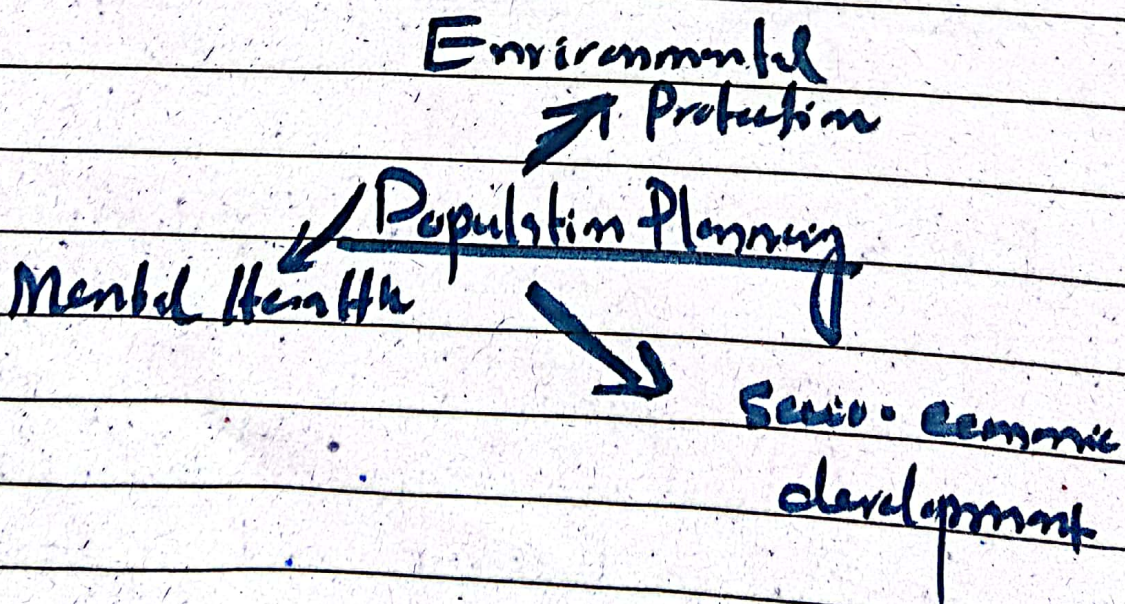 Environmental
Protection
Population Planning
Mental Health
Socio-economic
development